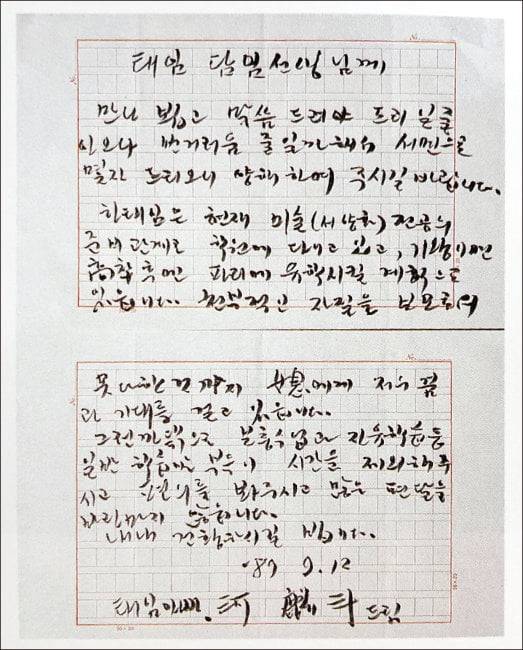 태임 담임선생님께
만나 뵙고 말씀 드려야 드릴 일을
이오나 번거러움 줄일까해서 서면으로
몇자 드리오니 양해하여 주시길 바랍니다.
한태임은 현재 미술(서양화) 전공의
준비관계로 학원에 다니고 있고, 기왕이면
高校 후엔 파리에 유학시킬 계획으로
있읍니다. 천부적인 자질을 부모로서
못다한 것까지 에게 저의 꿈
과 기대를 걸고 있읍니다.
그런까닭으로 보충수업과 자율학습등
일반 부득이 시간을 제외해주
시고 편의를 봐주시고 많은 편달을
바라마지 않습니다.
내내 건강하시길 빕니다.
'87 9. 12
태임아빠. 드림